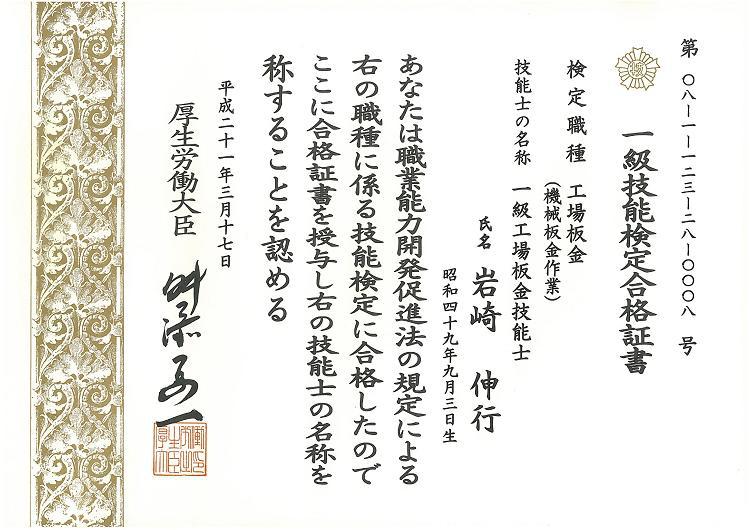 第 〇八ー一ー一二三ー二八ー〇〇〇八 号
一級技能検定合格証書
検定職種 工場板金
(機械板金作業)
技能士の名称 一級工場板金技能士
氏名 岩崎 伸行
昭和四十九年九月三日生
あなたは職業能力開発促進法の規定による
右の職種に係る技能検定に合格したので
ここに合格証書を授与し右の技能士の名称を
称することを認める
平成二十一年三月十七日
厚生労働大臣 舛添要一